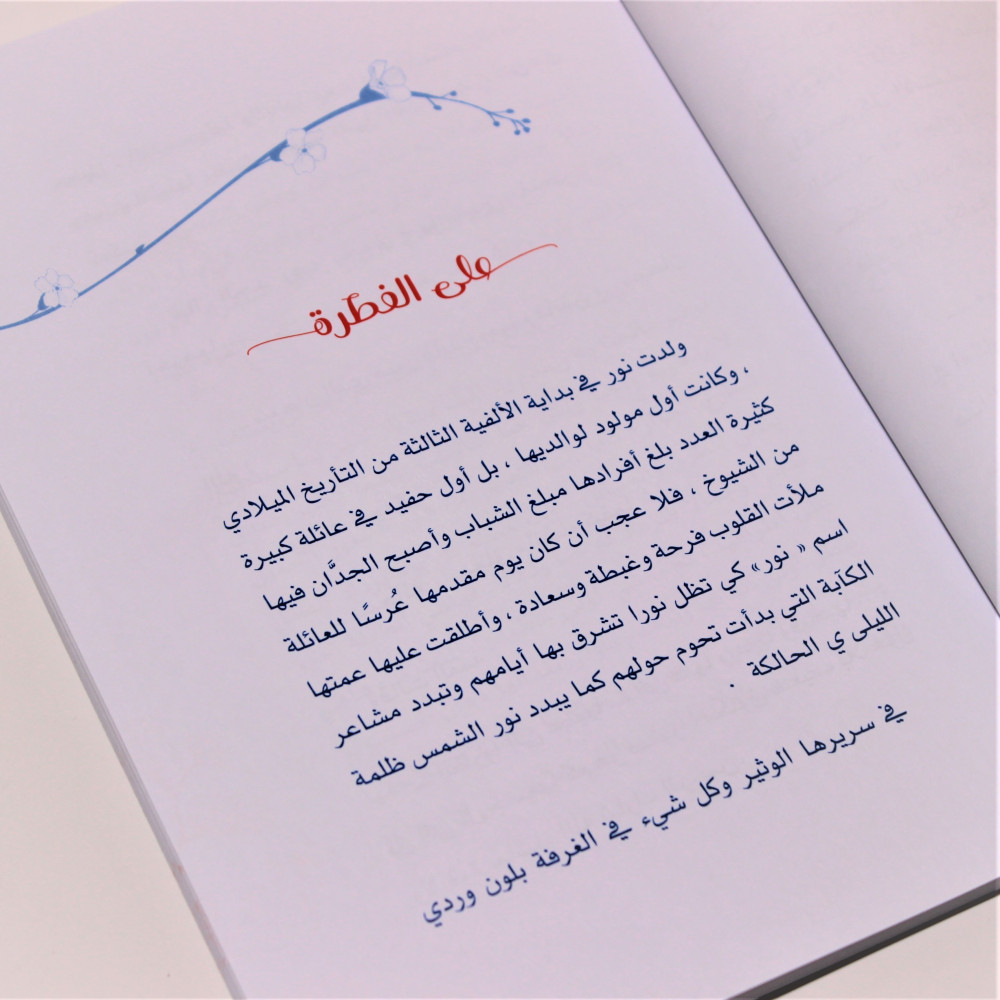 على الفطرة
ولدت نور في بداية الألفية الثالثة من التأريخ الميلادي
، وكانت أول مولود لوالديها ، بل أول حفيد في عائلة كبيرة
كثيرة العدد بلغ أفرادها مبلغ الشباب وأصبح الجدَّان فيها
من الشيوخ ، فلا عجب أن كان يوم مقدمها عُرسًا للعائلة
ملأت القلوب فرحة وغبطة وسعادة ، وأطلقت عليها عمتها
اسم « نور» كي تظل نورا تشرق بها أيامهم وتبدد مشاعر
الكآبة التي بدأت تحوم حولهم كما يبدد نور الشمس ظلمة
الليلى ي الحالكة .
في سريرها الوثير وكل شيء في الغرفة بلون وردي